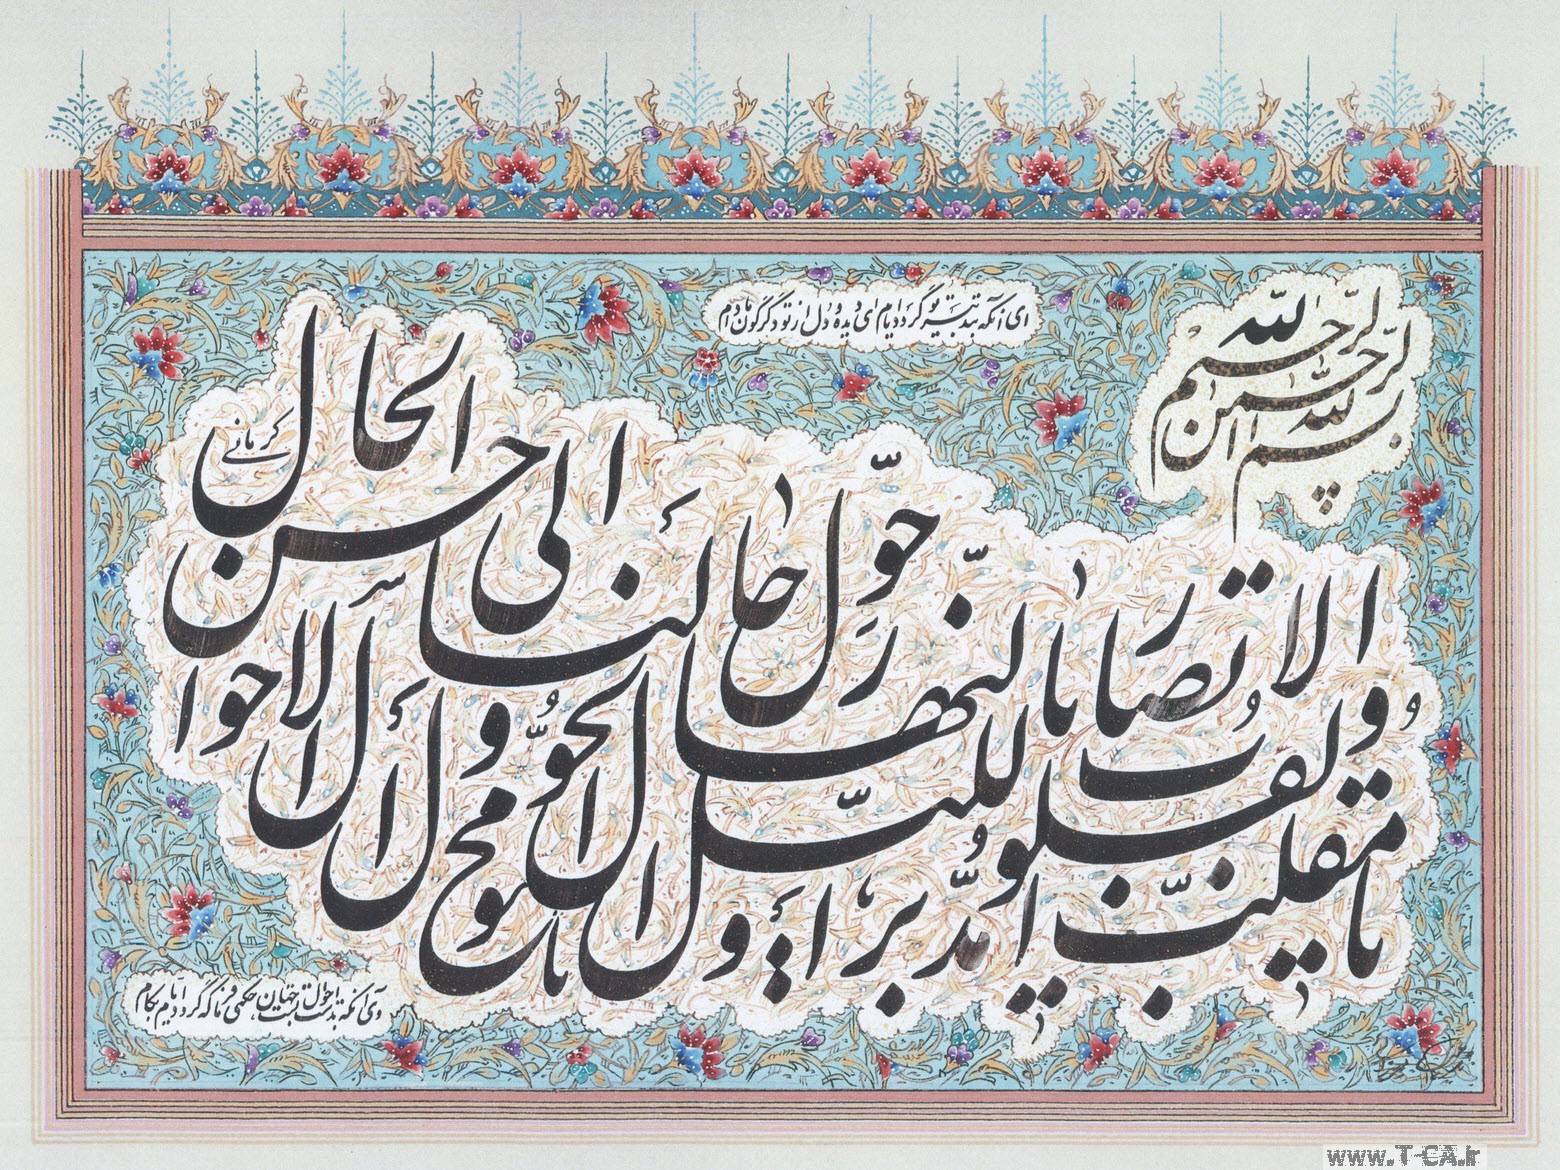 بسم الله الرحمن الرحیم
ای آنکه بتدبیر تو گردد ایام ای دیده و دل از تو دگرگون مادام
یا مقلب القلوب و الابصار
یا مدبر اللیل و النهار
یا محول الحول و الاحوال
حول حالنا الی احسن الحال
کرمانی
وی آنکه بدست تست احوال جهان حکمی فرما که گردد ایام بکام
www.T-CA.ir